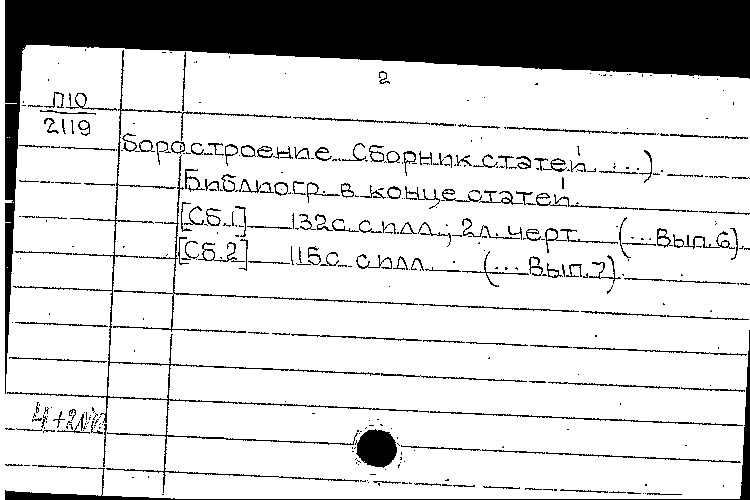 2
П10
2119
боростроение Сборник статей ...).
Библиогр. в конце статей.
[Сб.1] 132с. с илл.; 2л. черт. (...Вып.6)
[Сб.2] 115с. с илл. (...Вып.7).